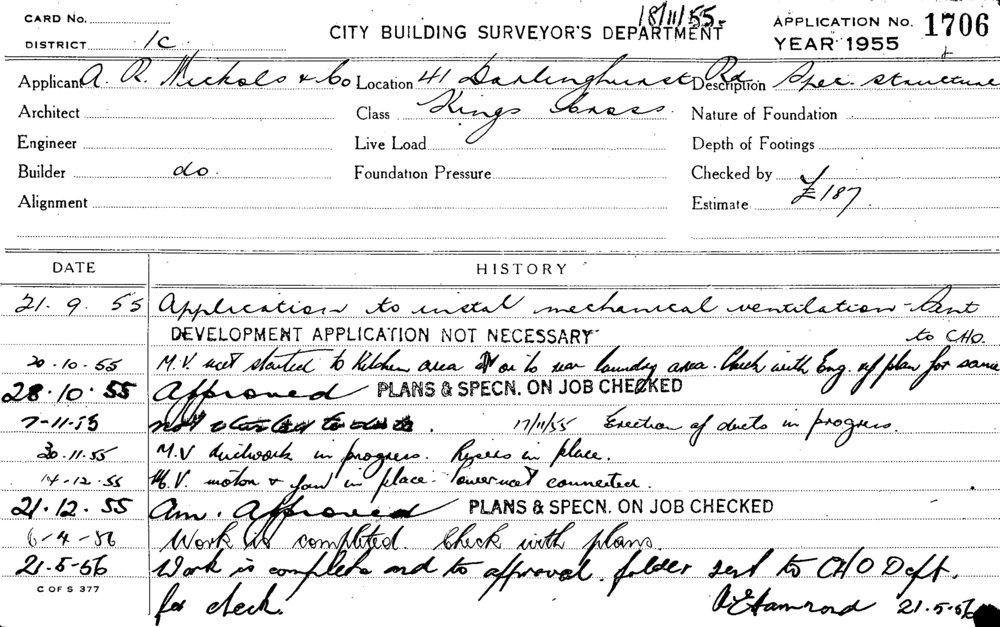 18/11/55.
CARD No.
DISTRICT 1C
CITY BUILDING SURVEYOR'S DEPARTMENT
APPLICATION No. 1706
YEAR 1955
Applicant A. R. Nichols & Co Location 41 Darlinghurst Rd Description Spec. structure
Architect Class Kings Cross Nature of Foundation
Engineer Live Load Depth of Footings
Builder do. Foundation Pressure Checked by
Alignment Estimate £187
DATE HISTORY
21. 9. 55 Application to instal mechanical ventilation - Cent
DEVELOPMENT APPLICATION NOT NECESSARY to CHO.
20.10.55 M.V. not started to Kitchen area or to rear laundry area. Check with Eng. plan for same
28.10.55 Approved PLANS & SPECN. ON JOB CHECKED
7-11-55 17/11/55 Erection of ducts in progress.
30.11.55 M.V ductwork in progress. Risers in place.
14-12-55 M.V. motor & fan in place. Power not connected.
21.12.55 Am. Approved PLANS & SPECN. ON JOB CHECKED
6-4-56 Work is completed. Check with plans.
21.5-56 Work is complete and to approval. folder sent to CHO Dept.
C OF S 377
for check. 21.5.56